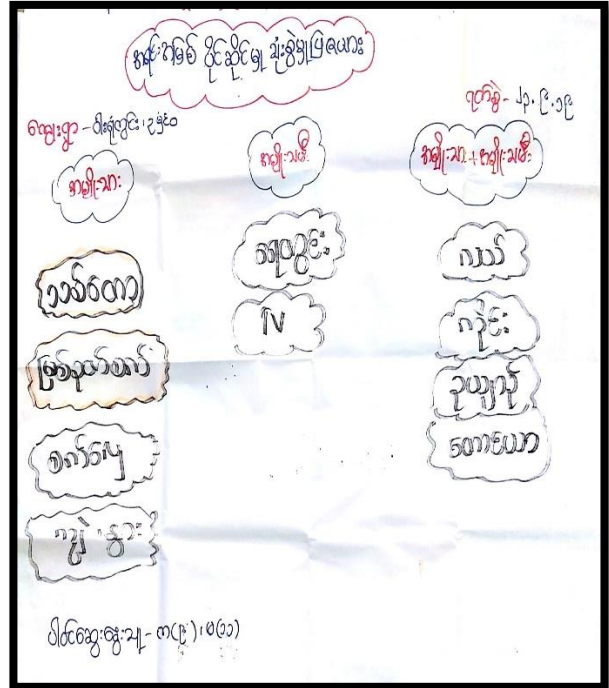 အရင်းအမြစ် ပိုင်ဆိုင်မှု သုံးစွဲမှုပြဇယား
ရက်စွဲ - ၂၃.၉.၁၉
ကျေးရွာ -
အမျိုးသား
အမျိုးသမီး
အမျိုးသား + အမျိုးသမီး
သစ်တော
မြစ်နယ်မြေ
စက်လှေ
ကျွဲ၊ နွား
ရေတွင်း
TV
လယ်
ကိုင်း
ဥယျာဉ်
တောင်ယာ
ပါဝင်ဆွေးနွေးသူ - က(၉)၊ မ(၁၁)